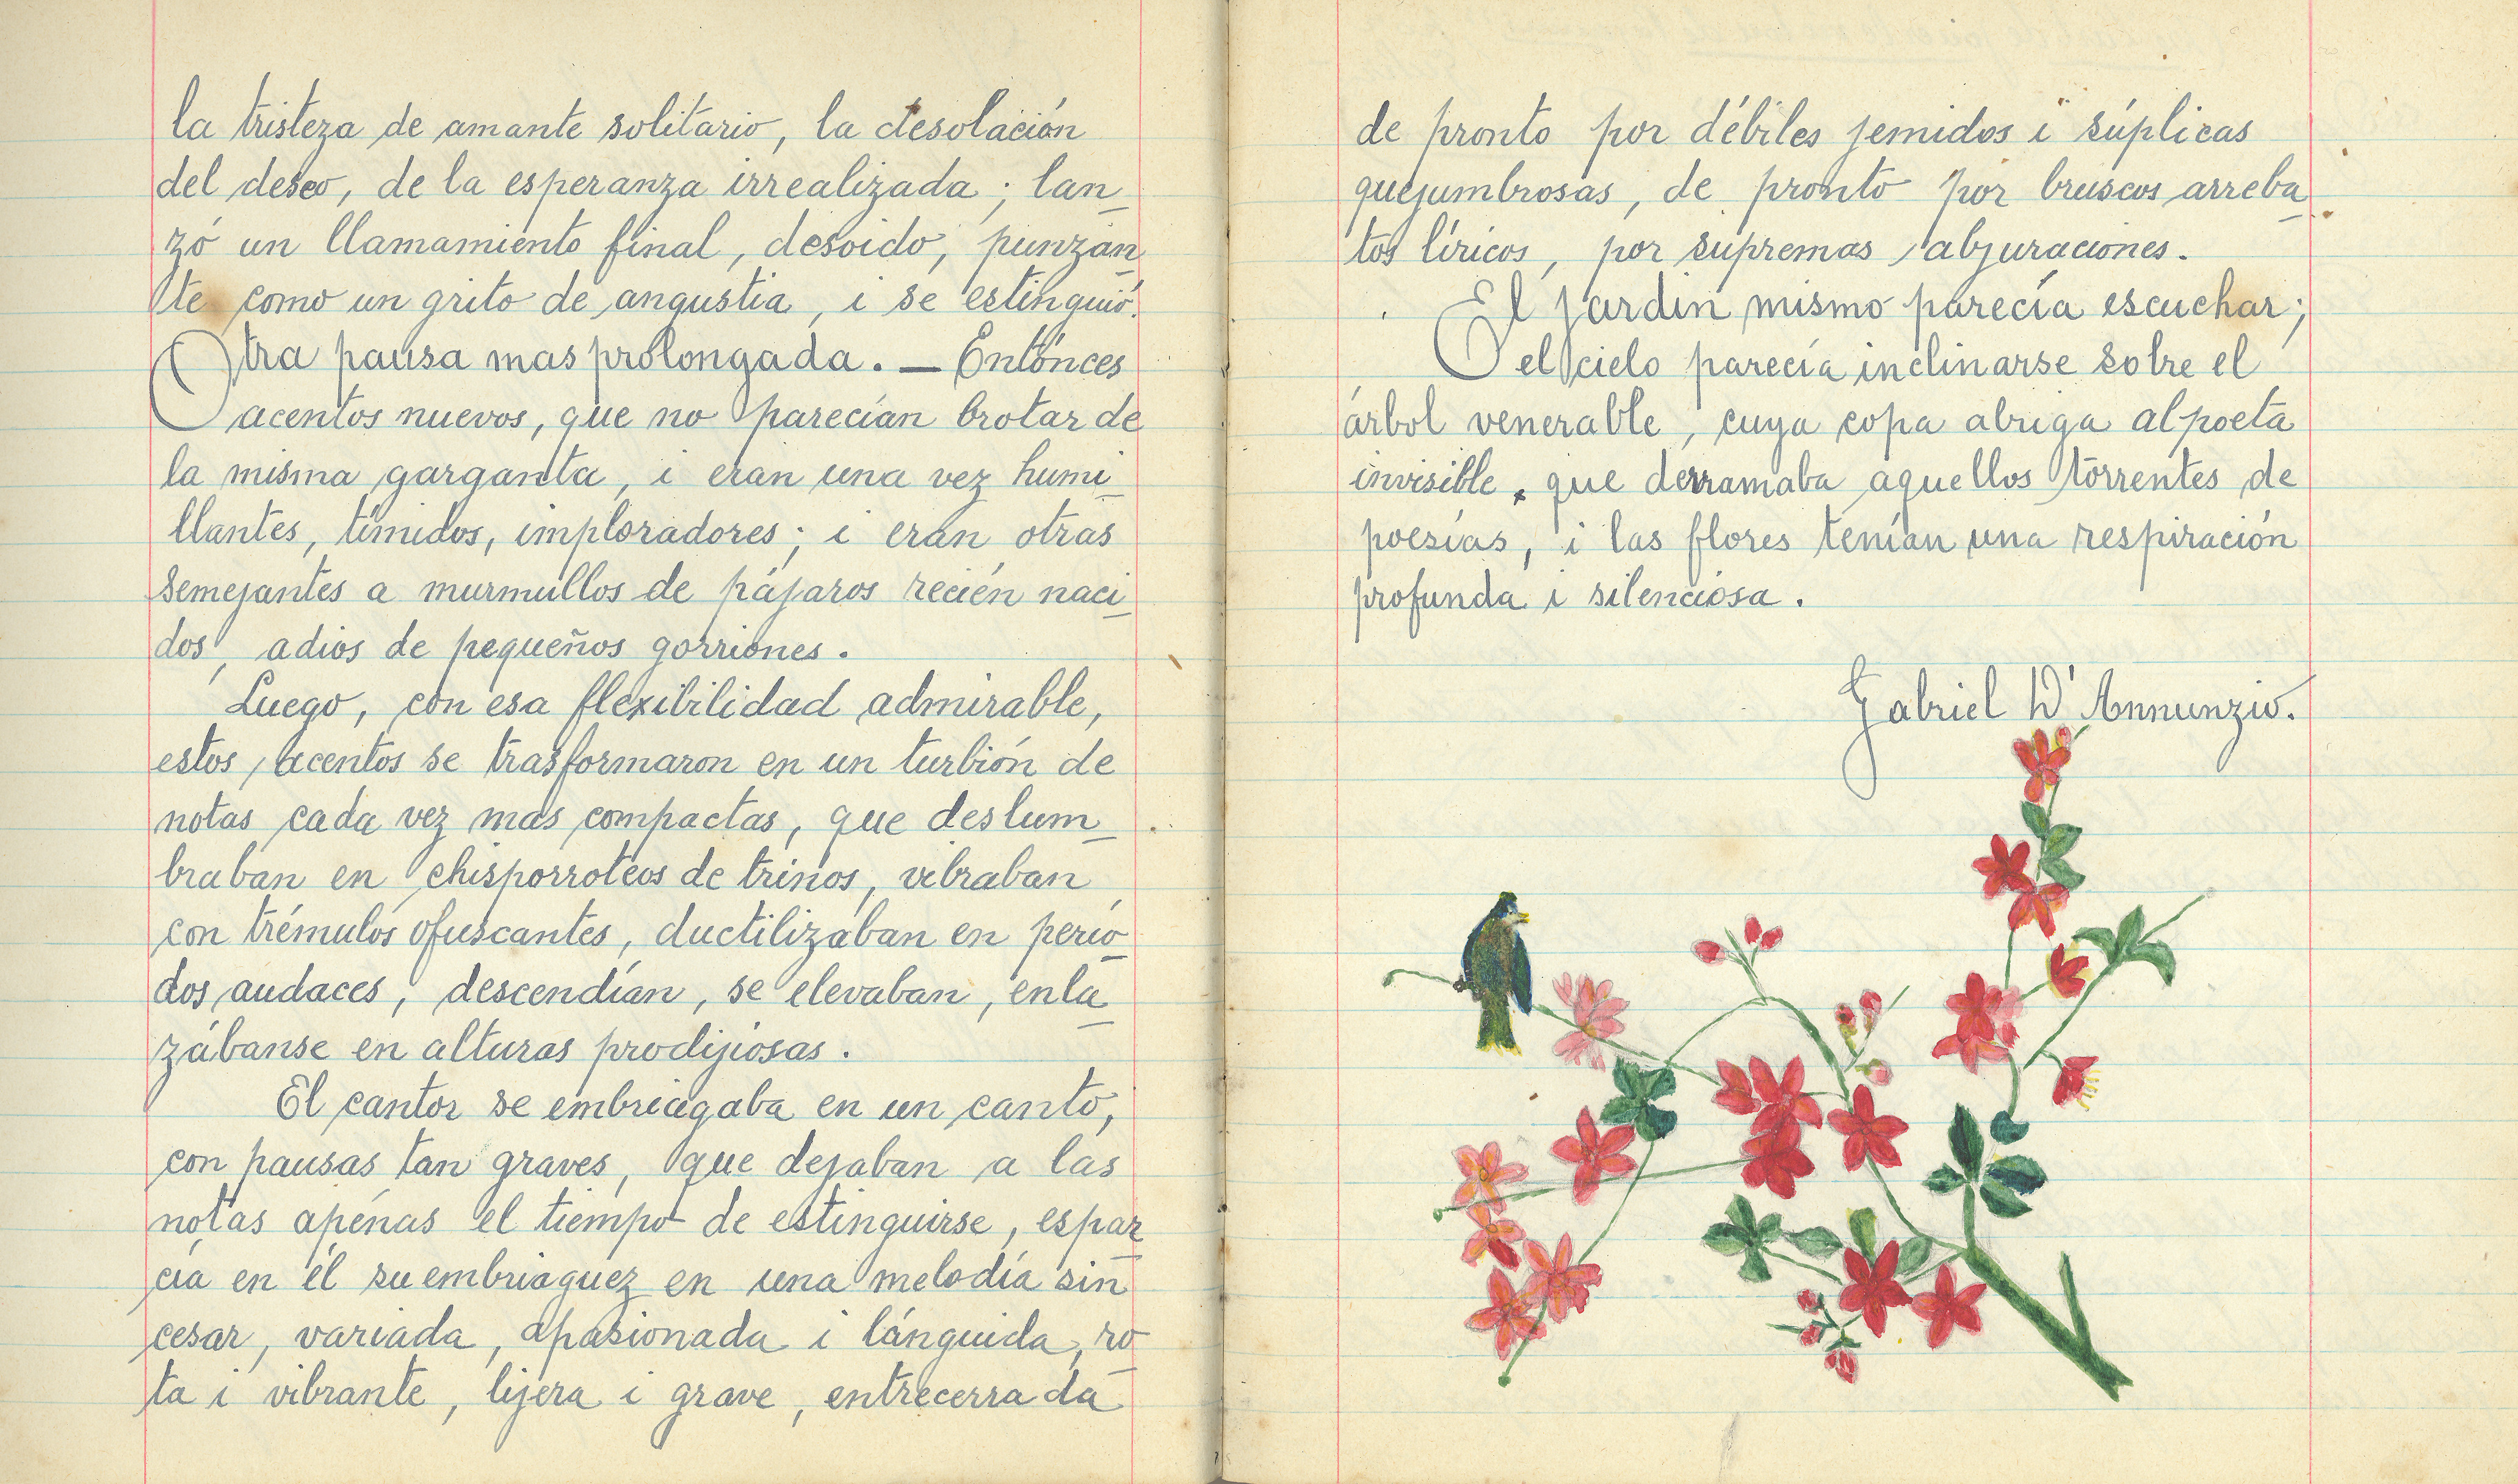 la tristeza de amante solitario, la desolación
del deseo, de la esperanza irrealizada; lan_
zó un llamamiento final, desoido, punzan_
te como un grito de angustia, i se estinguió.
Otra pausa mas prolongada. — Entónces
acentos nuevos, que no parecían brotar de
la misma garganta, i eran una vez humi_
llantes, tímidos, imploradores; i eran otras
semejantes a murmullos de pájaros recién naci_
dos, adios de pequeños gorriones.
Luego, con esa flexibilidad admirable,
estos acentos se trasformaron en un turbión de
notas cada vez mas compactas, que deslum_
braban en chisporroteos de trinos, vibraban
con trémulos ofuscantes, ductilizaban en perío_
dos audaces, descendían, se elevaban, enla_
zábanse en alturas prodijiosas.
El cantor se embriagaba en un canto,
con pausas tan graves, que dejaban a las
notas apénas el tiempo de estinguirse, espar_
cía en él su embriaguez en una melodía sin
cesar, variada, apasionada i lánguida, ro_
ta i vibrante, lijera i grave, entrecerrada
de pronto por débiles jemidos i súplicas
quejumbrosas, de pronto por bruscos arreba_
tos líricos, por supremas abjuraciones.
El jardín mismo parecía escuchar;
el cielo parecía inclinarse sobre el
árbol venerable, cuya copa abriga al poeta
invisible, que derramaba aquellos torrentes de
poesías, i las flores tenían una respiración
profunda i silenciosa.
Gabriel D'Annunzio.